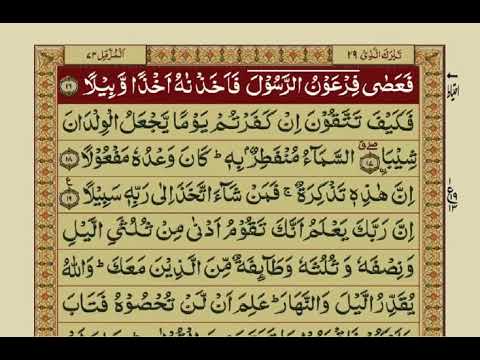 تَبٰرَكَ الَّذِىْ ٢٩
اَلْمُزَّمِّل ٧٣
فَعَصٰى فِرْعَوْنُ الرَّسُوْلَ فَاَخَذْنٰهُ اَخْذًا وَّبِيْلًا ﴿١٦﴾
فَكَيْفَ تَتَّقُوْنَ اِنْ كَفَرْتُمْ يَوْمًا يَّجْعَلُ الْوِلْدَانَ
شِيْبَا ۖۗ ﴿١٧﴾ السَّمَآءُ مُنْفَطِرٌۢ بِهٖ ؕ كَانَ وَعْدُهٗ مَفْعُوْلًا ﴿١٨﴾
اِنَّ هٰذِهٖ تَذْكِرَةٌ ۚ فَمَنْ شَآءَ اتَّخَذَ اِلٰى رَبِّهٖ سَبِيْلًا ﴿١٩﴾ ع
اِنَّ رَبَّكَ يَعْلَمُ اَنَّكَ تَقُوْمُ اَدْنٰى مِنْ ثُلُثَىِ الَّيْلِ
وَنِصْفَهٗ وَثُلُثَهٗ وَطَآئِفَةٌ مِّنَ الَّذِيْنَ مَعَكَ ؕ وَاللّٰهُ
يُقَدِّرُ الَّيْلَ وَالنَّهَارَ ؕ عَلِمَ اَنْ لَّنْ تُحْصُوْهُ فَتَابَ